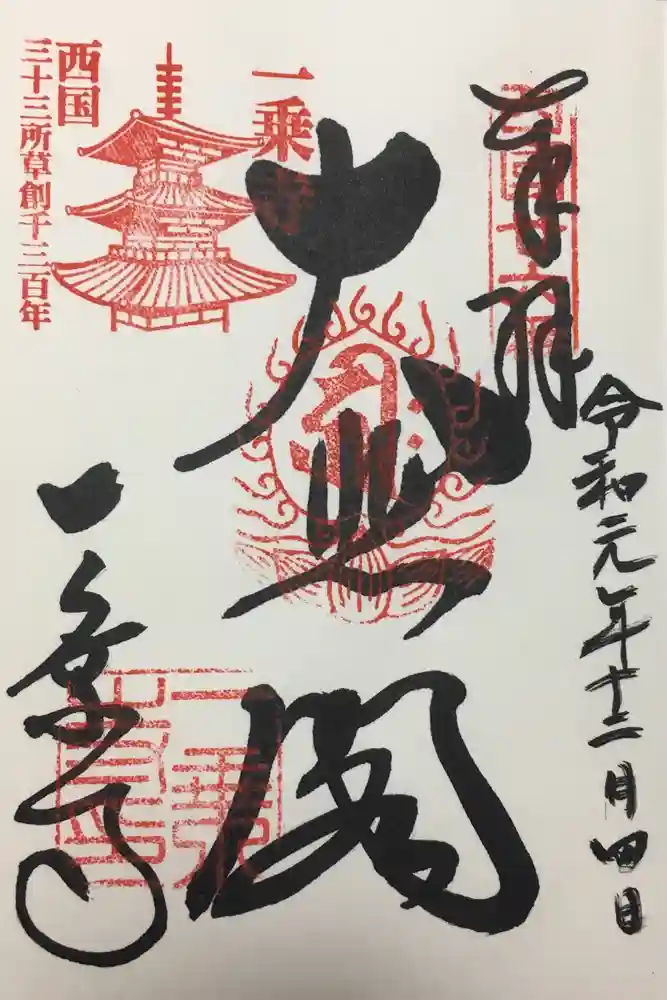 奉拝
令和元年十二月四日
大悲閣
一乗寺
西国
三十三所草創千三百年
一乗寺